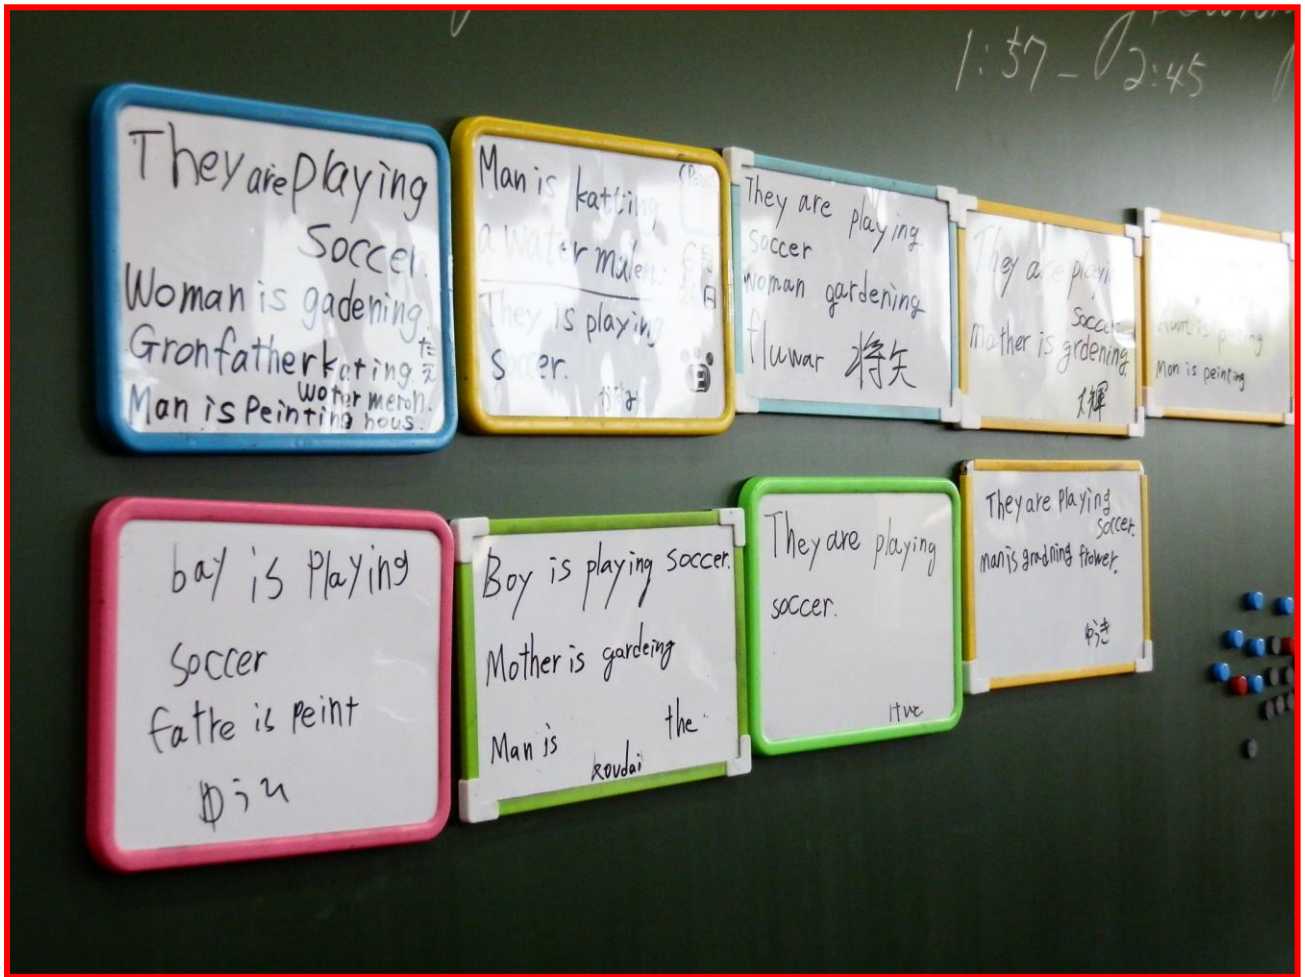 1:57-2:45
They are playing
soccer.
Woman is gadening.
Gronfather kating.
water meron.
Man is Peinting hous.
Man is katting
a water malen.
They is playing
soccer.
They are playing
soccer
woman gardening
fluwar 将矢
They are playin
soccer
mather is grdening.
大輝
Man is peinting
bay is Playing
soccer
fatre is peint
Boy is playing soccer.
Mother is gardeing
Man is the
koudai
They are playing
soccer.
They are Playing
soccer.
man is gradning frower.
ゆうき